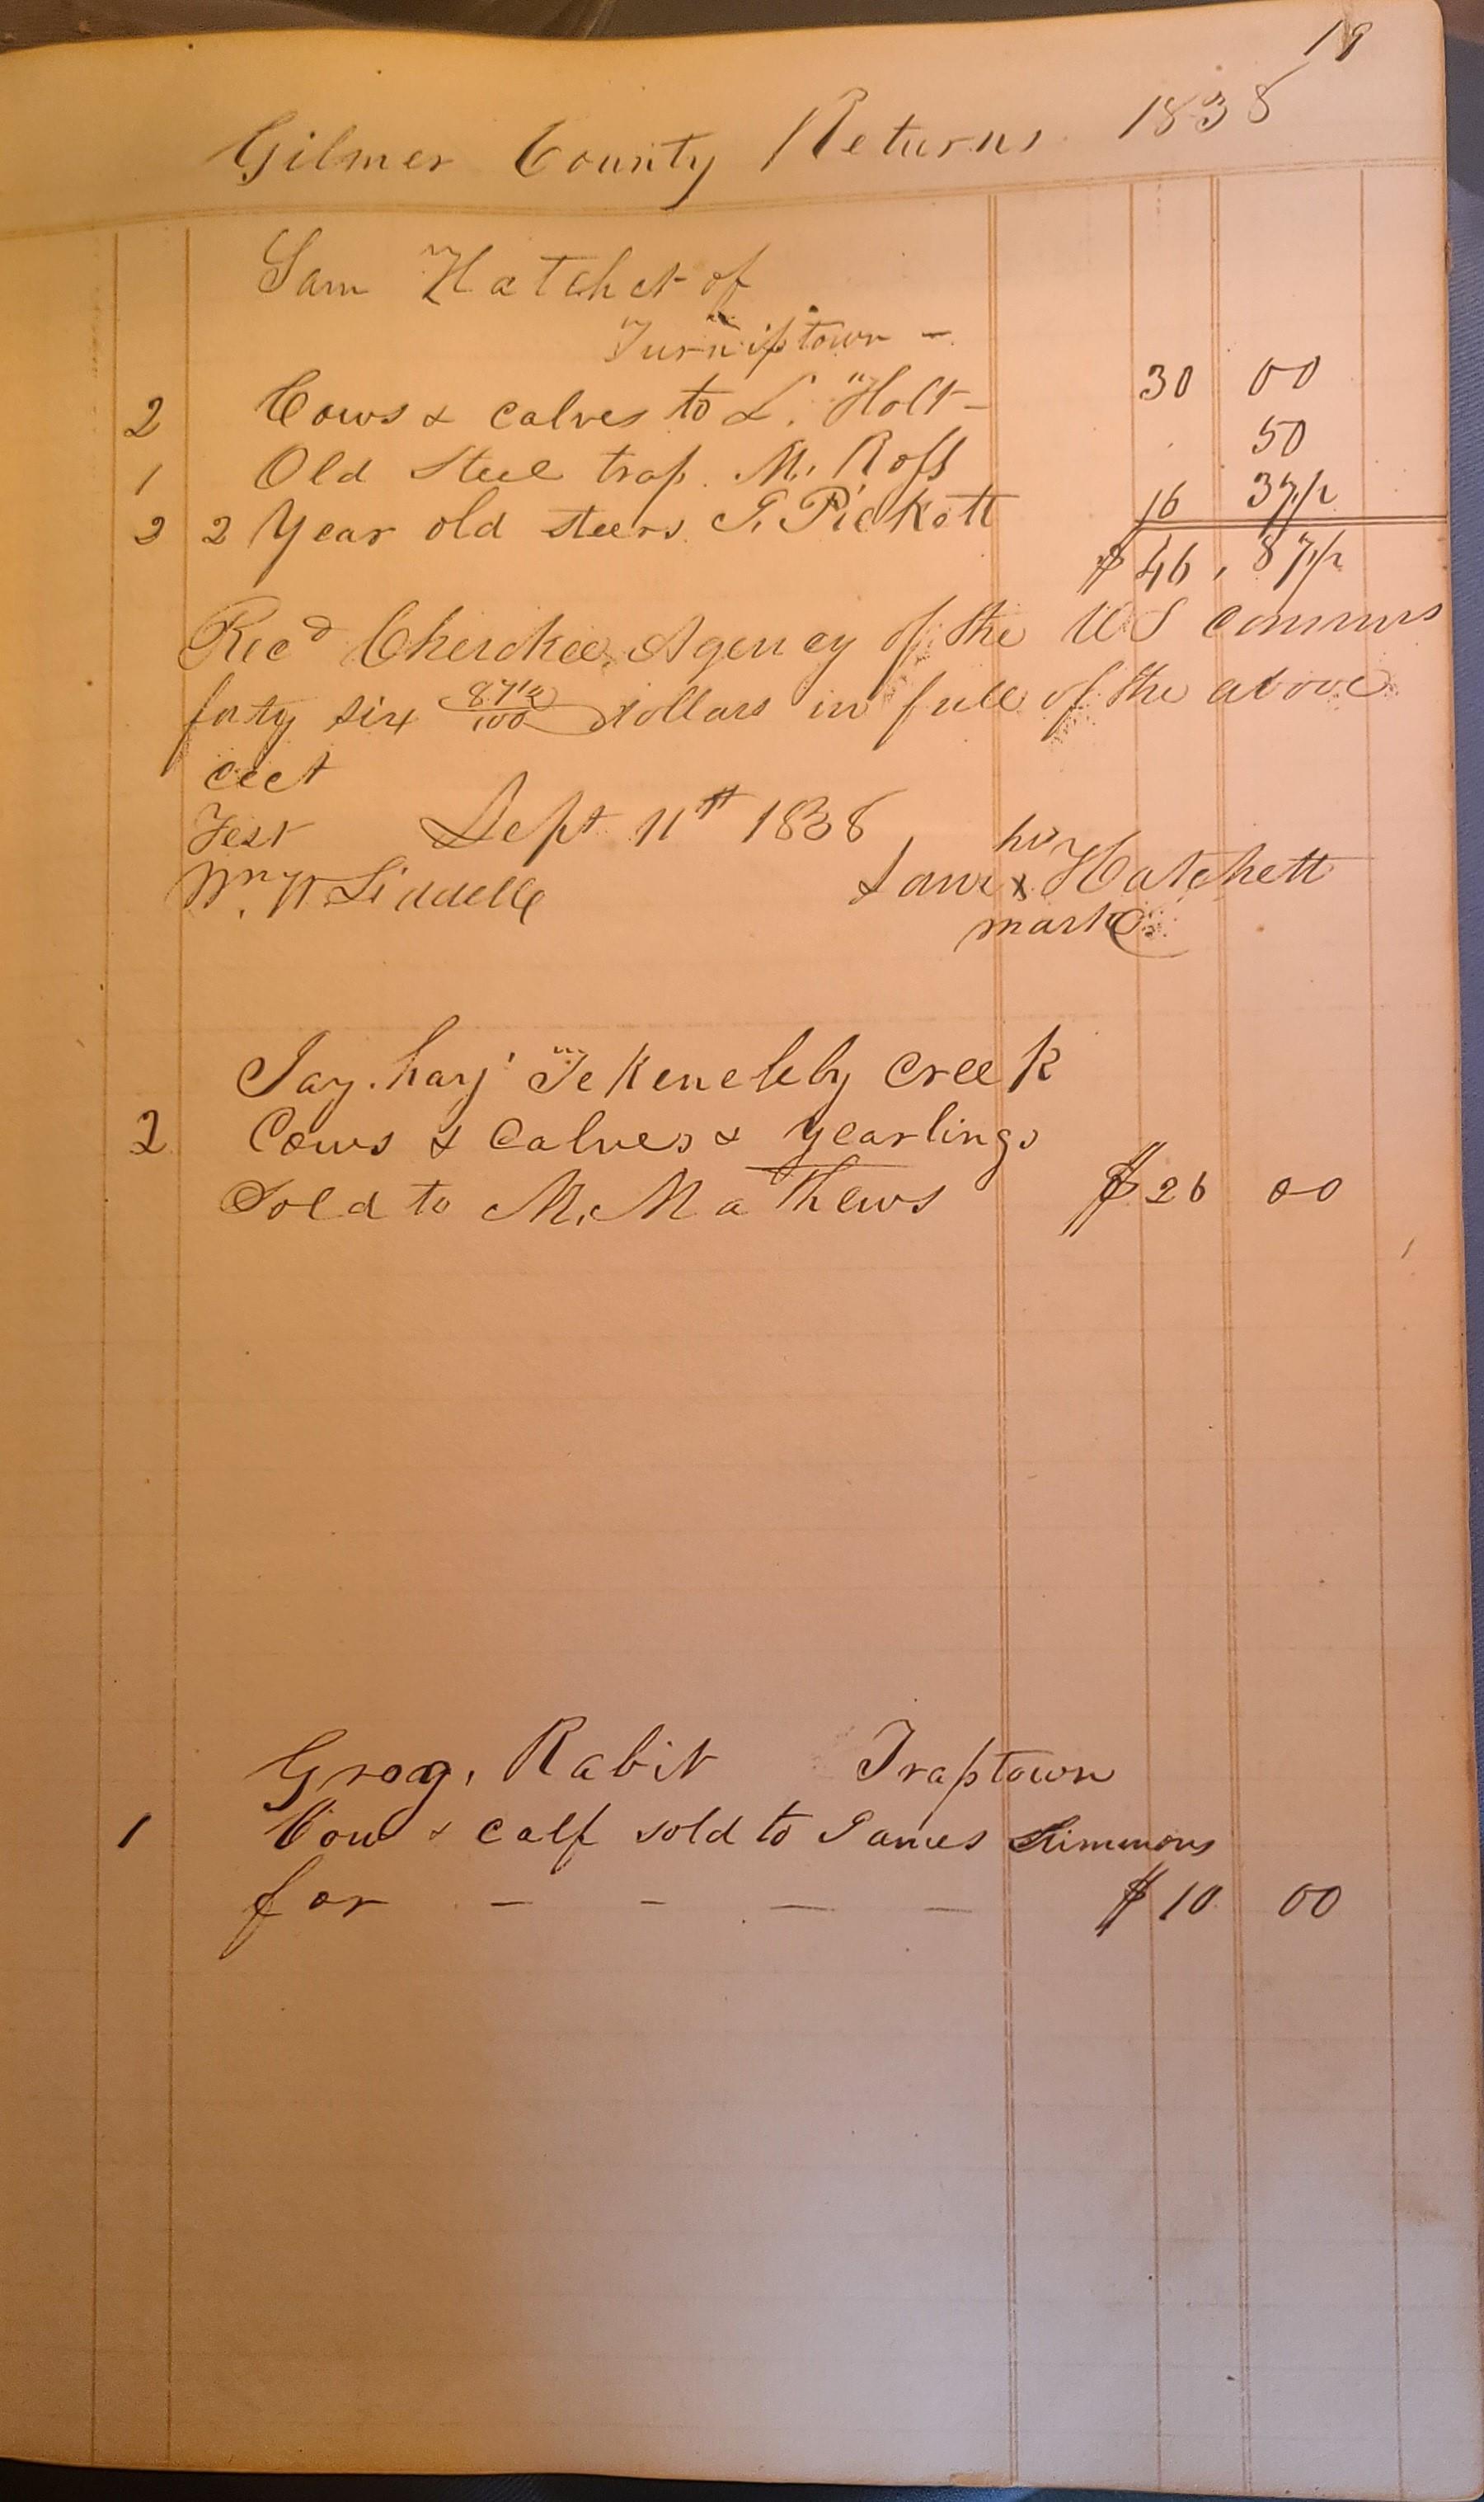 19
Gilmer County Returns 1838
Sam Hatchet of
Turniptown -
2 Cows & calves to L. Holt - 30 00
1 Old Steel trap. M. Ross 50
2 2 Year old steers. G. Pickett 16 37½
$ 46, 87½
Recd Cherokee Agency of the US commrs
forty six 87½/100 dollars in full of the above
acct
Test Sept 11th 1838 his
Wm N Liddell Sam x Hatchett
mark
Jay. hay' Tekenelely Creek
2 Cows & Calves & yearlings
Sold to M. Mathews $ 26 00
Grog, Rabit Traptown
1 Cow & calf sold to James Simmons
for - - - - $ 10 00